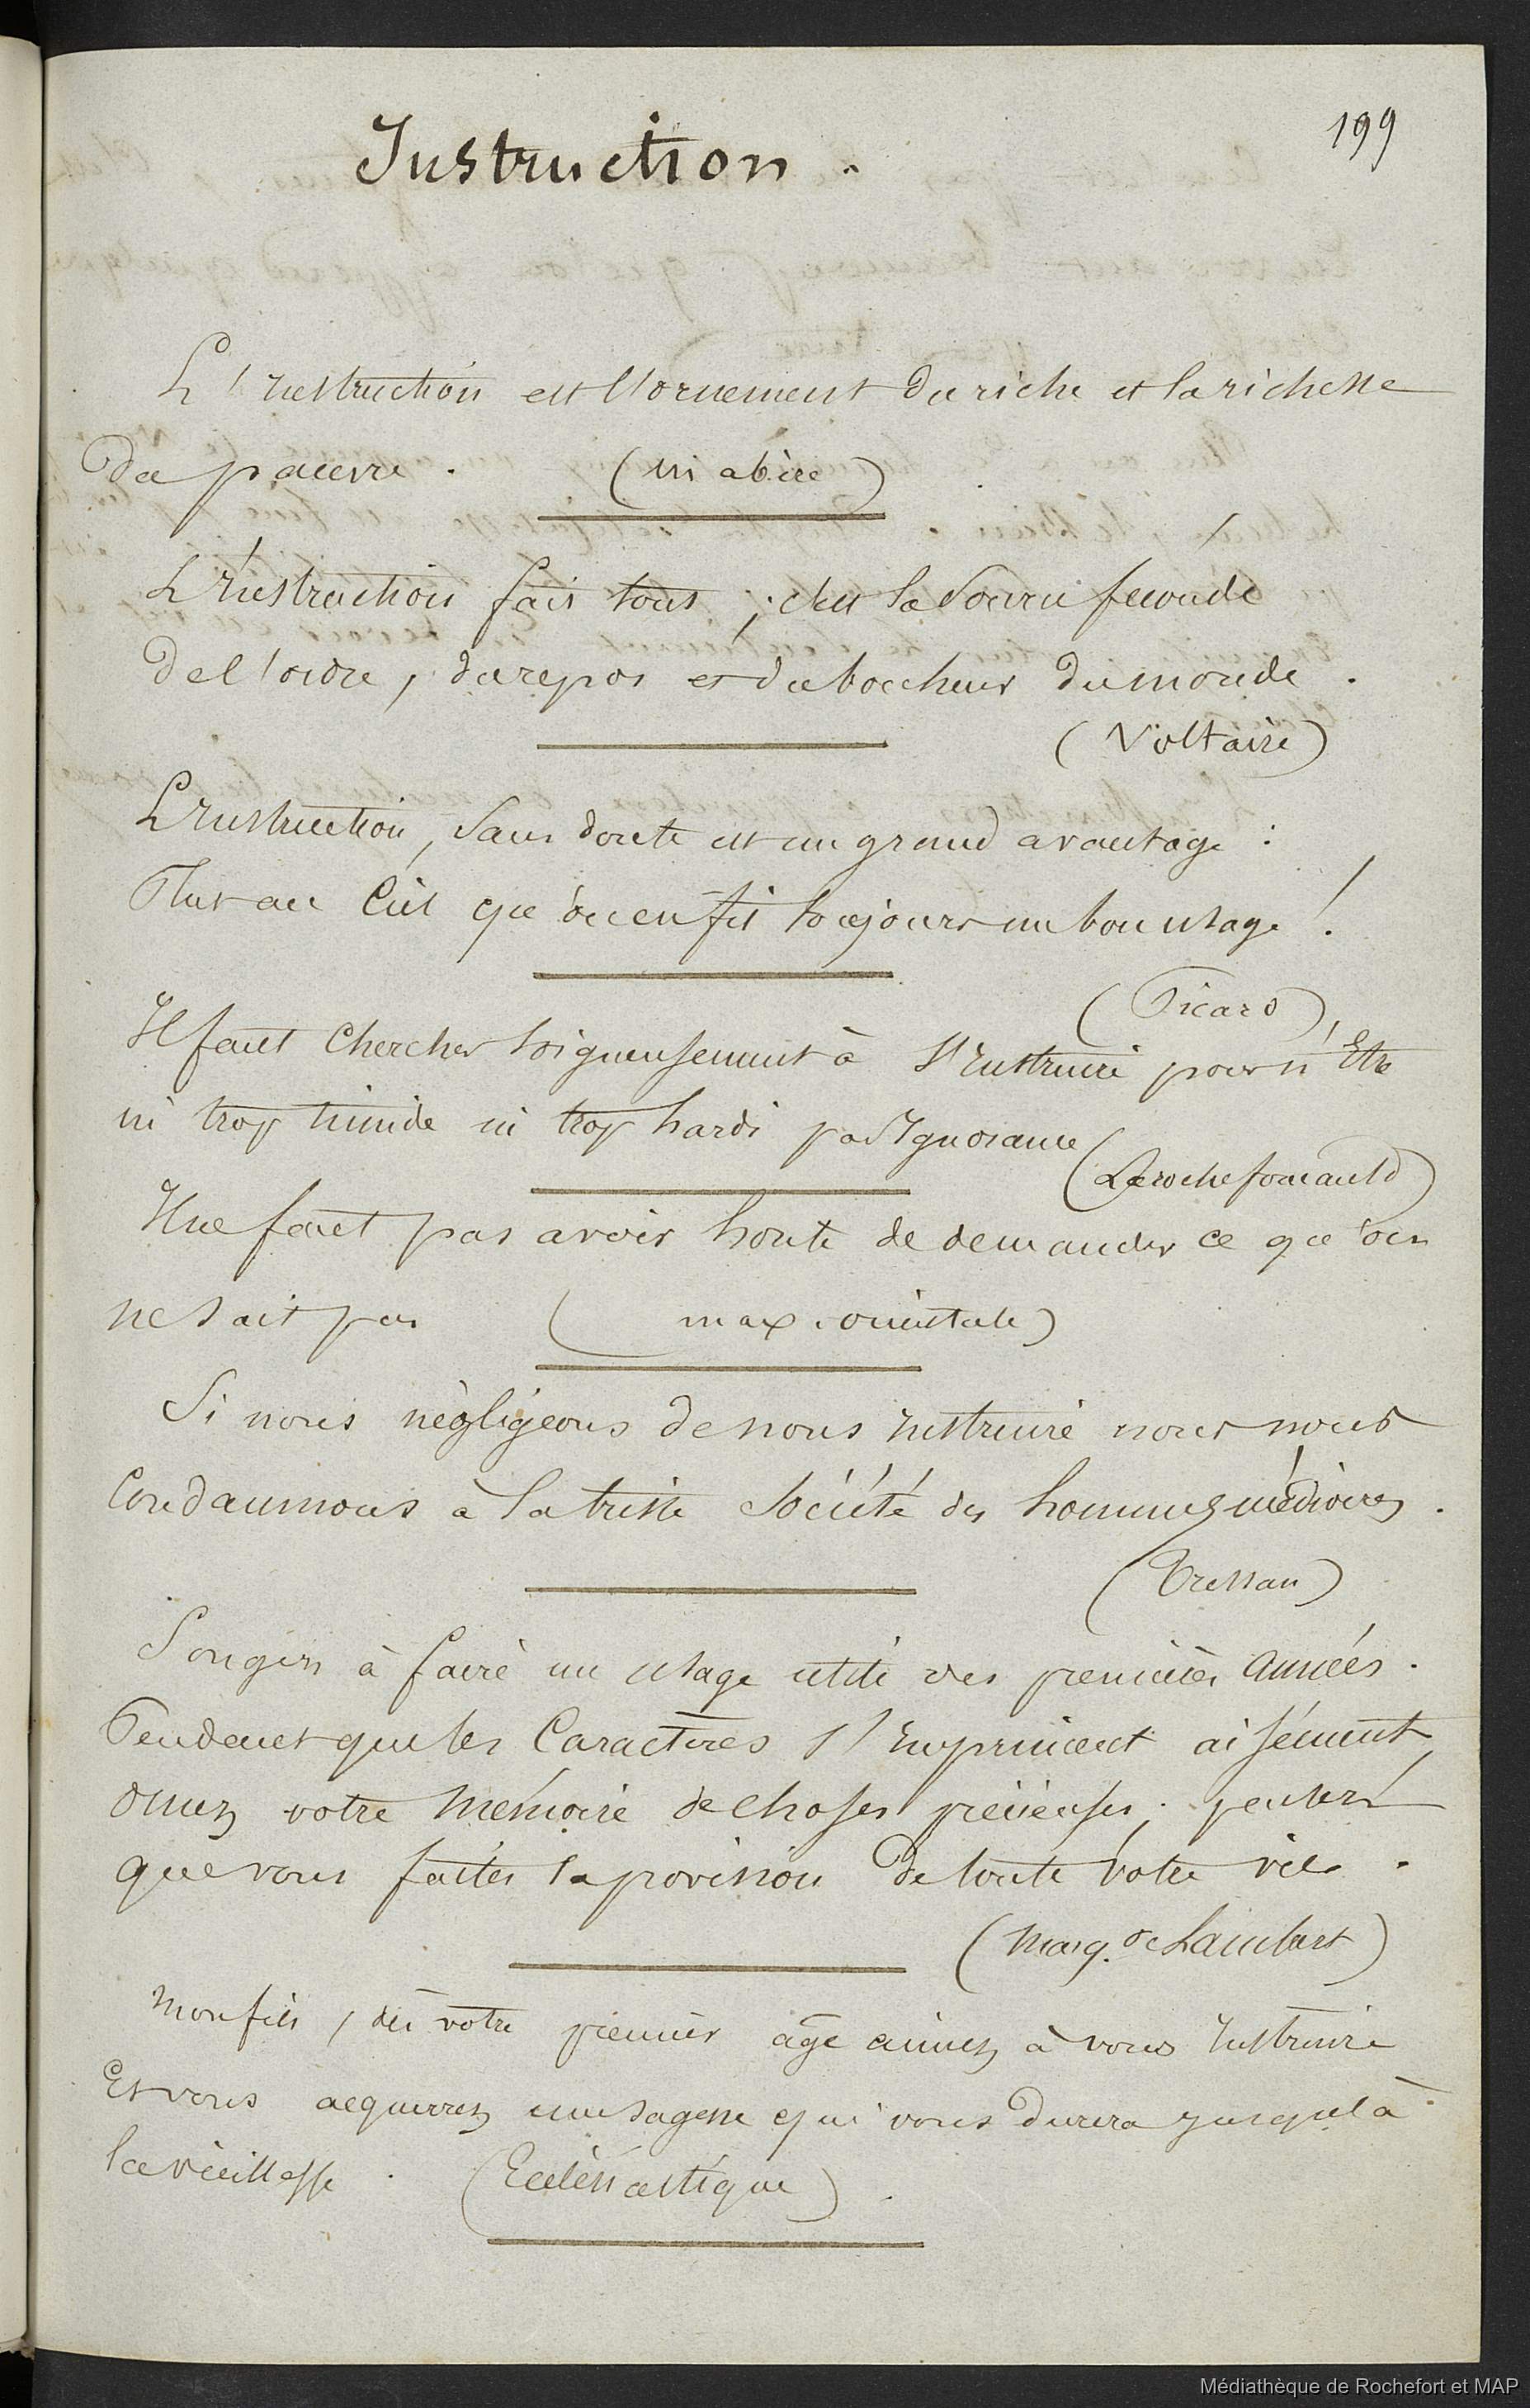 199
Instruction.
L'Instruction est l'ornement du riche et la richesse
du pauvre.
L'Instruction fait tout ; c'est la source féconde
De l'ordre, du repos et du bonheur du monde.
(Voltaire)
L'Instruction, sans doute est un grand avantage :
Plut au Ciel que l'on en fit toujours un bon usage !
(Picard)
Il faut chercher soigneusement à s'Instruire pour n'Etre
ni trop timide ni trop hardi par Ignorance
(Larochefoucauld)
Il ne faut pas avoir honte de demander ce que l'on
ne sait pas (max. orientale)
Si nous négligeons de nous Instruire nous nous
Condamnons à la triste Société des hommes médiocres.
(Tressan)
Songez à faire un usage utile des premières années.
Pendant que les Caractères s'Impriment aisément,
ornez votre Mémoire de choses précieuses ; pensez
que vous faites la provision de toute votre vie.
(Marq. de Lambert)
Mon fils, dès votre premier âge aimez à vous Instruire
Et vous acquerrez une sagesse qui vous durera jusqu'à
la vieillesse. (Ecclésiastique).
Médiathèque de Rochefort et MAP